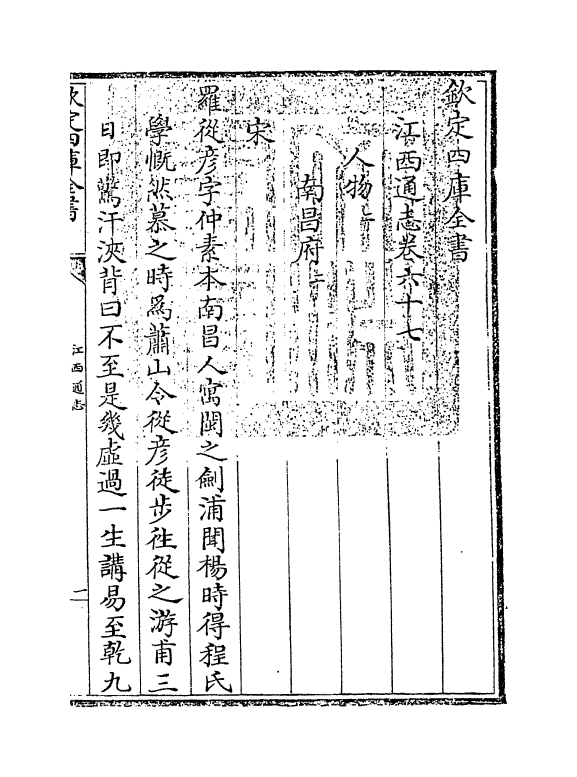 欽定四庫全書
江西通志卷六十七
人物二
南昌府二
宋
羅從彦字仲素本南昌人寓閩之劍浦聞楊時得程氏
學慨然慕之時為蕭山令從彦徒步往從之游甫三
日即驚汗浹背曰不至是幾虛過一生講易至乾九
欽定四庫全書
江西通志
一